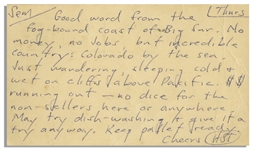 Sem Thurs
Good word from the
fog-bound coast of Big Sur. No
money, no jobs, but incredible
country: Colorado by the sea.
Just wandering, sleeping cold &
wet on cliffs above Pacific. $
running out — no dice for the
non-stellers here or anywhere.
May try dish-washing & give it a
try anyway. Keep pallet ready.
Cheers HST